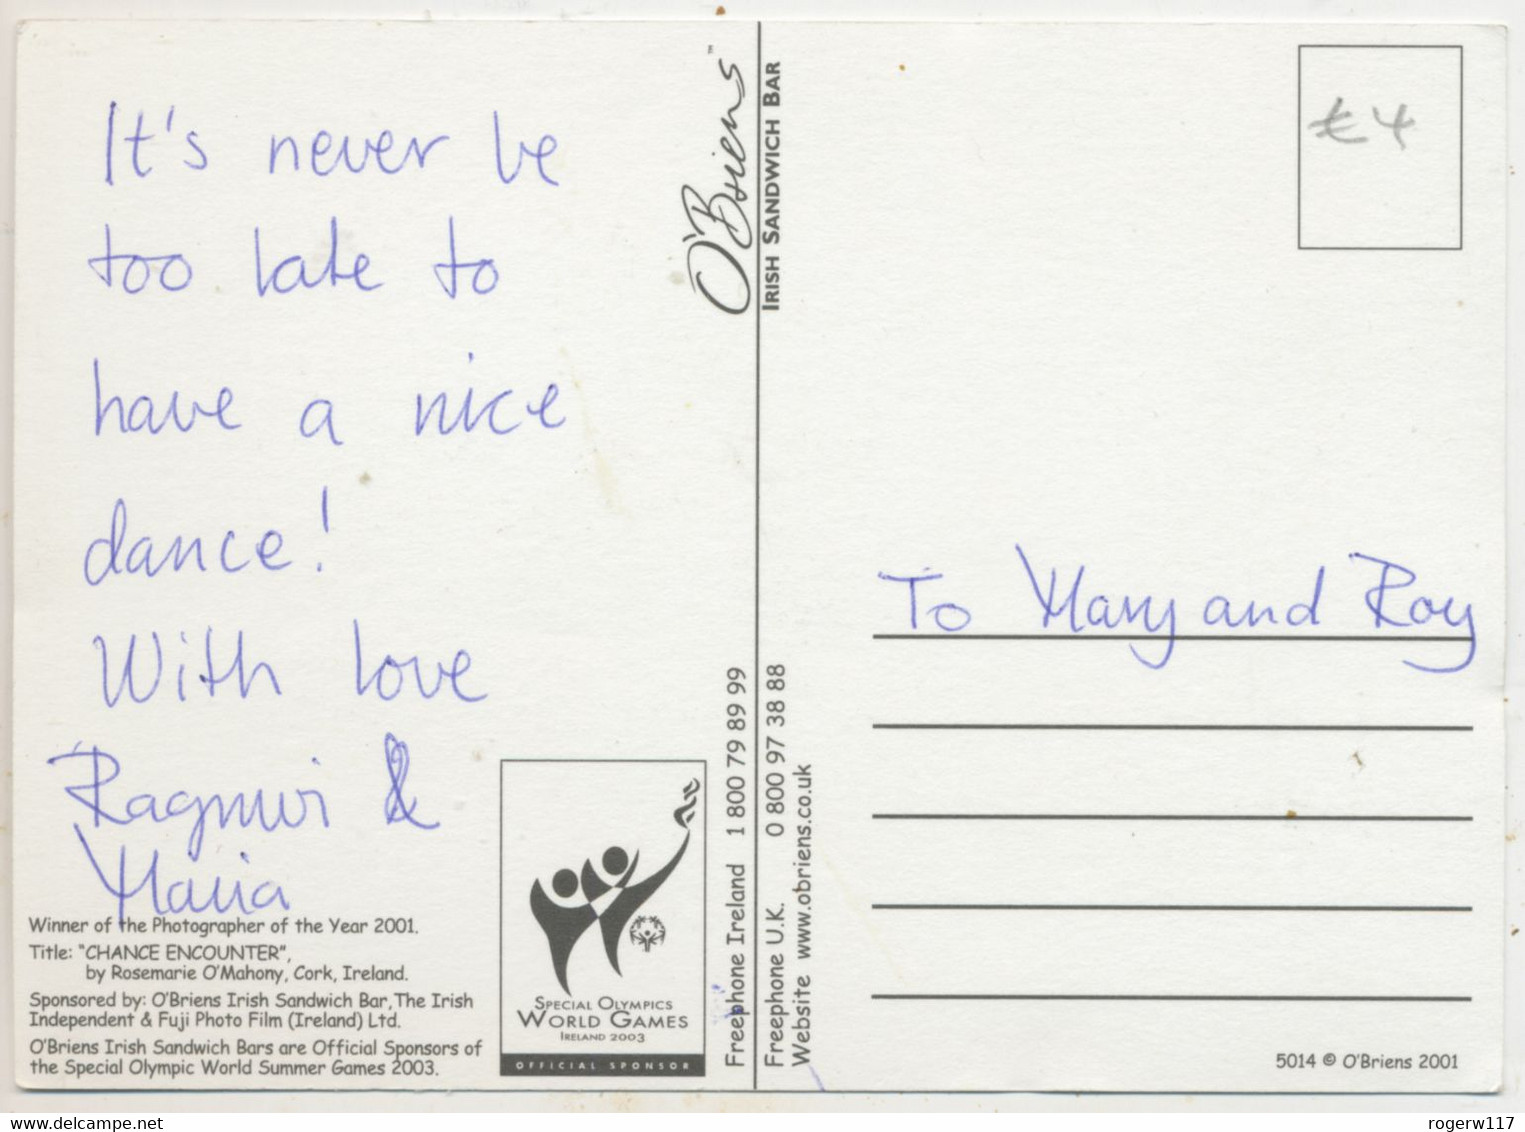 It's never be
too late to
have a nice
dance!
With love
Ragnwi &
Maria
Winner of the Photographer of the Year 2001.
Title: "CHANCE ENCOUNTER",
by Rosemarie O'Mahony, Cork, Ireland.
Sponsored by: O'Briens Irish Sandwich Bar, The Irish
Independent & Fuji Photo Film (Ireland) Ltd.
O'Briens Irish Sandwich Bars are Official Sponsors of
the Special Olympic World Summer Games 2003.
SPECIAL OLYMPICS
WORLD GAMES
IRELAND 2003
OFFICIAL SPONSOR
O'Briens™
IRISH SANDWICH BAR
Freephone Ireland 1 800 79 89 99
Freephone U.K. 0 800 97 38 88
Website www.obriens.co.uk
€4
To Mary and Roy
5014 © O'Briens 2001
delcampe.net
rogerw117